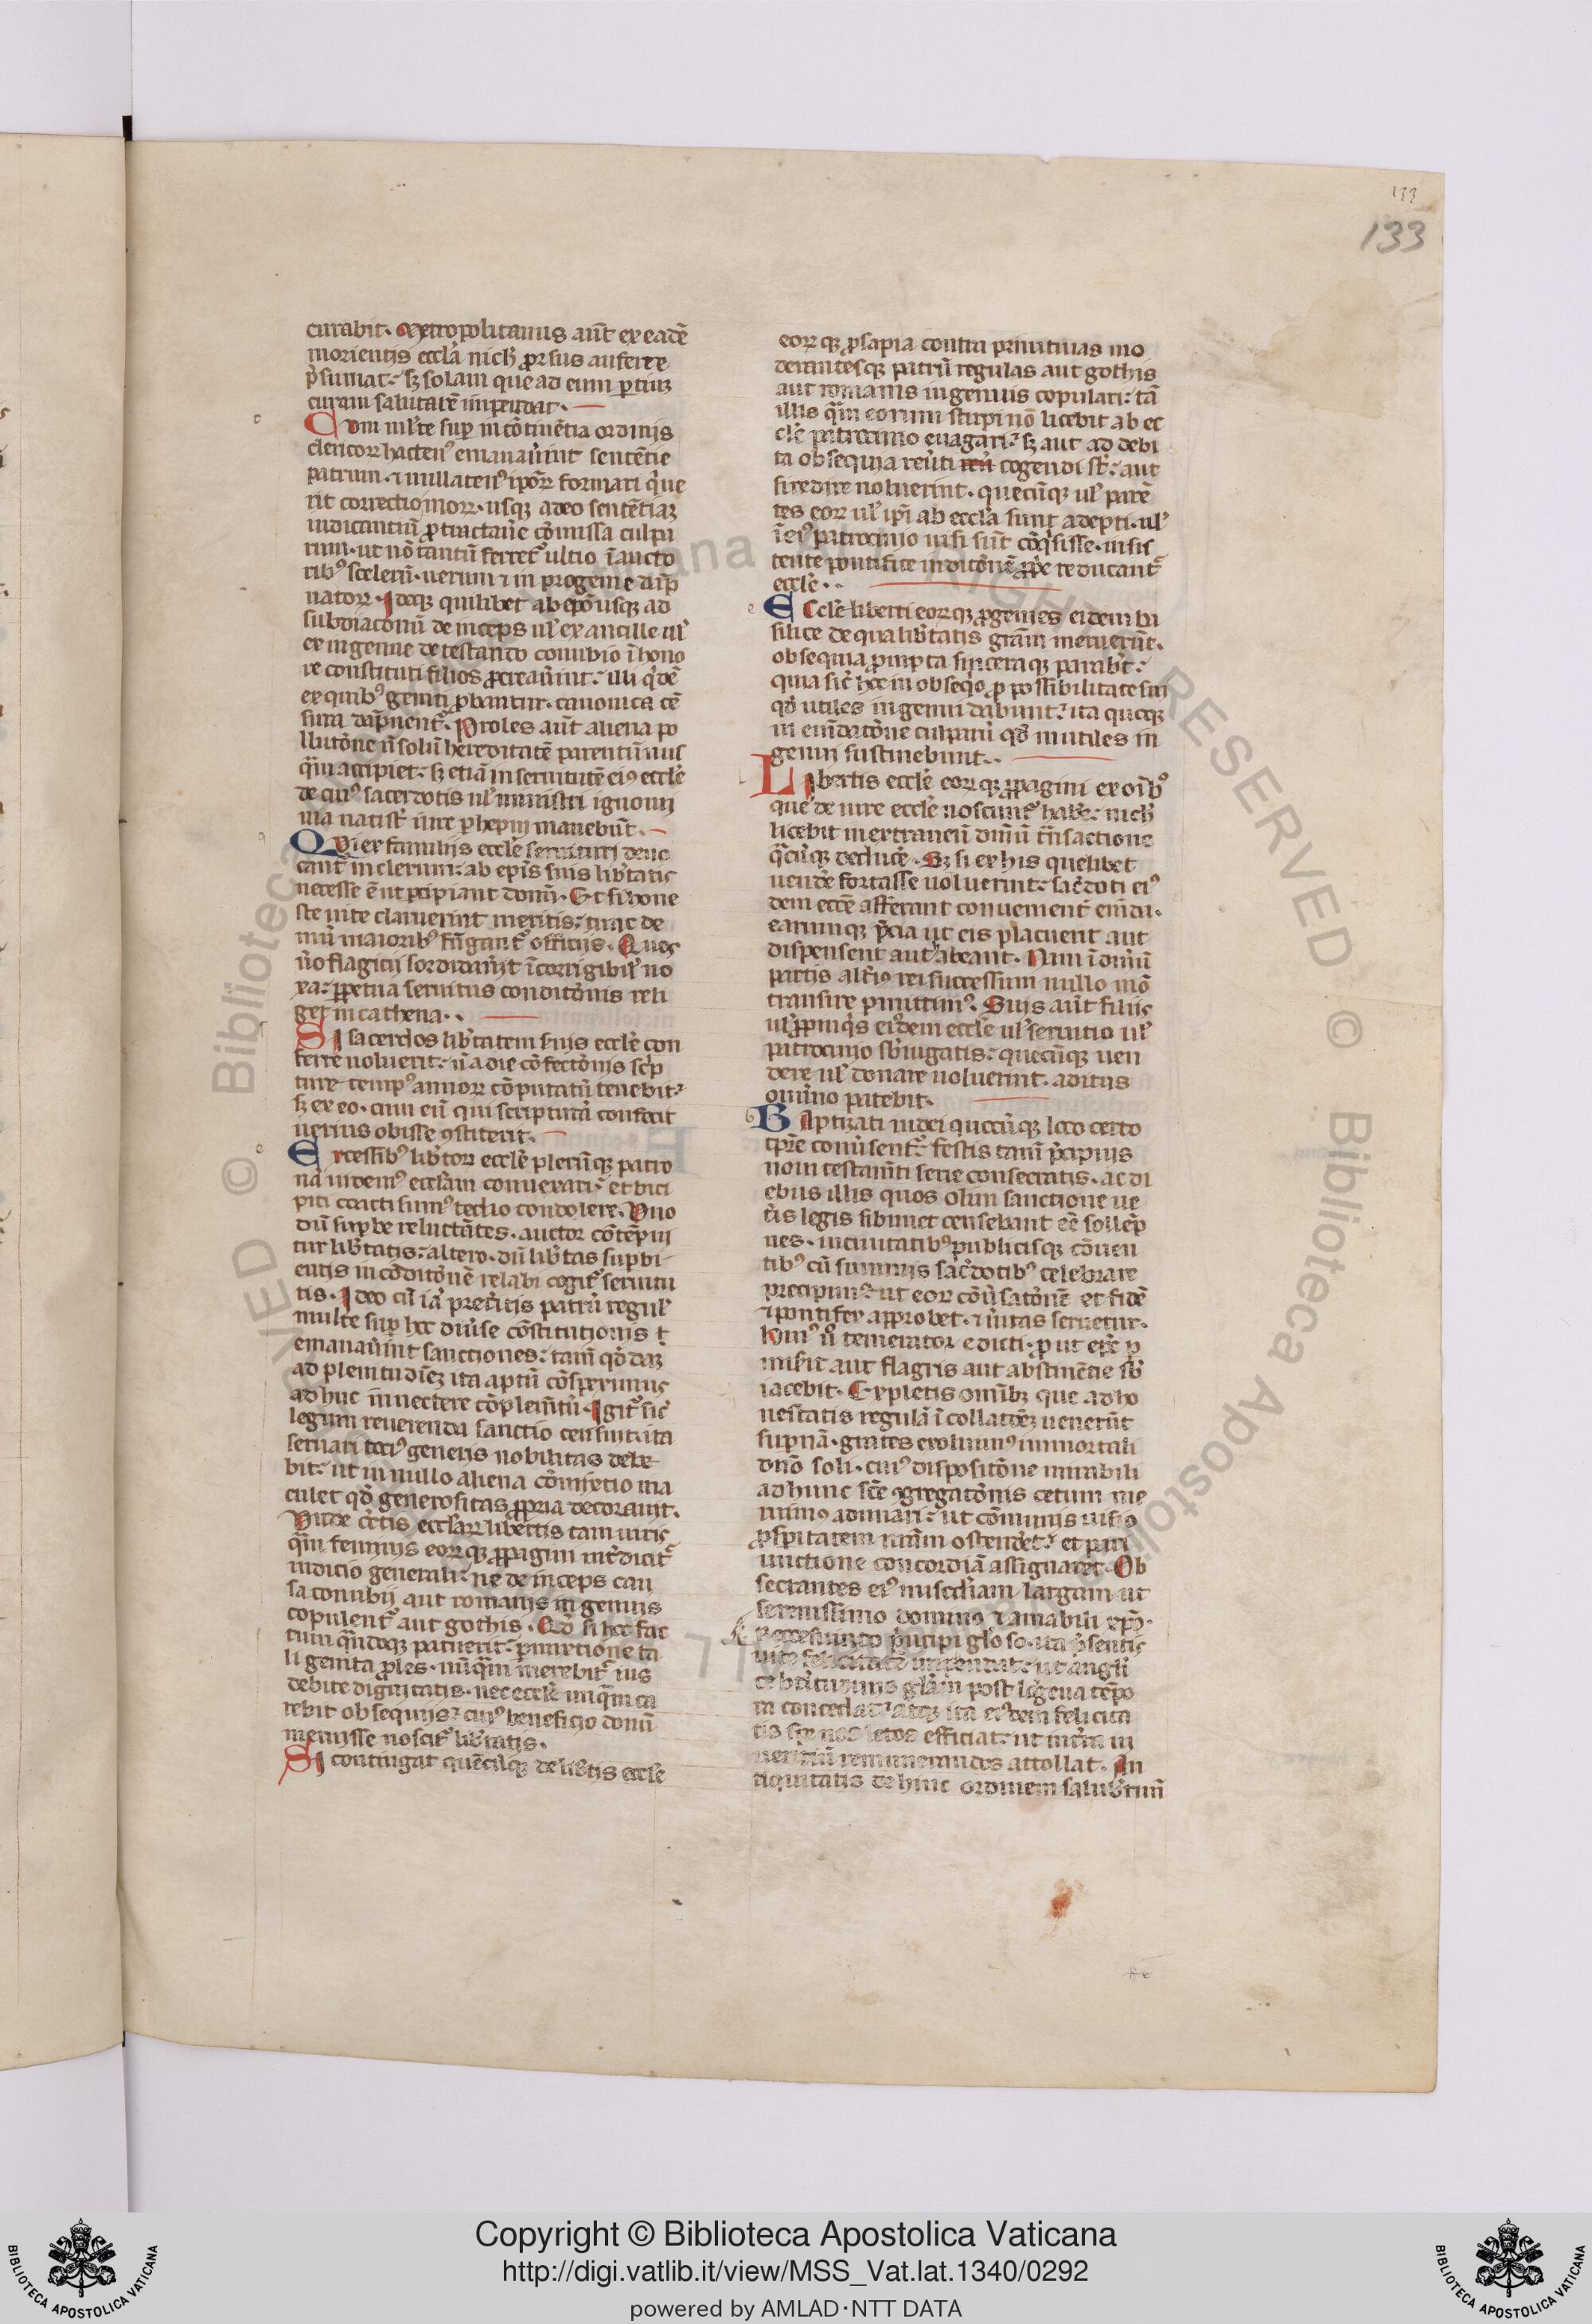 133
133
curabit. Metropolitanus aut̄ ex eadē
morientis eccl̄a nich̄ ꝓrsus auferre
p̄sumat. sꝫ solam que ad eum ꝑtinꝫ
curam salutarē impendat.
Cum multe suꝑ incōtinētia ordinis
clericoꝝ hacten᾽ emanauer̄int sentētie
patrum. ⁊ nullaten᾽ ipoꝝ formari q̄ue
rit correctio moꝝ. usqꝫ adeo sentētiaꝫ
iudicantiū ꝓtractaue cōmissa culpa
rum. ut nō tantū ferret᾽ ultio ī aucto
rib᾽ sceleꝝ. uerum ⁊ in progenie dāp
natoꝝ. Ideoqꝫ quilibet ab epō usqꝫ ad
subdiaconū deinceps ul᾽ ex ancille ul᾽
ex ingenue detestando conubio ī hono
re constituti filios ꝓcreauer̄int. illi q̄dē
ex quib᾽ geniti ꝓbantur. canonica cē
sura dāpnent᾽. Proles aut̄ aliena po
llutōne n̄ solū hereditatē parentū nus
q̄m accipiet. sꝫ etiā in seruitutē ei᾽ eccl̄e
de cui᾽ sacerdotis ul᾽ ministri ignomi
nia nati st̄ iure ꝑhēpni manebūt.
Qui ex familijs eccl̄e seruituri deuo
cant᾽ in clerum. ab ep̄is suis lib̄tatis
necesse ē ut ꝑcipiant donū. Et si hone
ste uite claruerint meritis. tunc de
mū maiorib᾽ fūgant᾽ officijs. Quos
ūo flagitij sordidauit īcorrigibil᾽ no
xa. ꝑpetua seruitus conditōnis reli
get in cathena.
Si sacerdos lib̄tatem seruis eccl̄e con
ferre uoluerit. n̄ a die cōfectōnis sc̄p
ture temp᾽ annoꝝ cōputatū tenebit᾽
sꝫ ex eo. cum eū qui scripturā confecit
uerius obisse ꝯstiterit.
Excessib᾽ lib̄toꝝ eccl̄e plerūqꝫ patro
nā uidem᾽ eccl̄iam conuexari. et bici
piti coacti sum᾽ tedio condolere. Uno
dū suꝑbe reluctātes. auctor cōtēpni
tur lib̄tatis. altero. dū lib̄tas suꝑbi
entis in cōditōnē relabi cogit᾽ seruitu
tis. Ideo cū iā pret̄itis patrū regul᾽
multe suꝑ hec diuer̄se cōstitutionis t̄
emanauer̄int sanctiones. tam̄ qd̄daꝫ
ad plenitudīeꝫ ita aptū cōspeximus
adhuc īnectere cōplem̄tū. Igit᾽ sic᾽
legum reuerenda sanctio censuit. ita
seruari toci᾽ generis nobilitas debe
bit. ut in nullo aliena cōmixtio ma
culet qd̄ generositas ꝓpria decorauit.
Unde c̄tis eccl̄iaꝝ libertis tam uiris
q̄m feminis eoꝝqꝫ ꝓpagini int̄dicit᾽
iudicio generali. ne deinceps cau
sa conubij aut romanis ingenuis
copulent᾽ aut gothis. Qd̄ si hoc fac
tum q̄ndoqꝫ patuerit. ꝑmixtione ta
li genita ꝓles. nūq̄m merebit᾽ ius
debite dignitatis. nec eccl̄e unq̄m ca
rebit obsequijs. cui᾽ beneficio donū
meruisse noscit᾽ lib̄tatis.
Si contingat quēcūqꝫ de lib̄tis eccl̄e
eoꝝqꝫ ꝓsapia contra primitiuas mo
derantesqꝫ patrū regulas aut gothis
aut romanis ingenuis copulari. tā
illis q̄m eorum stirpi nō licebit ab ec
cl̄e patrocinio euagari. sꝫ aut ad debi
ta obsequia reūti cogendi st̄. aut
si redire noluerint. quecūqꝫ ul᾽ parē
tes eoꝝ ul᾽ ip̄i ab eccl̄a sunt adepti. ul᾽
ī ei᾽ patrocinio uisi sūt cōq̄sisse. insis
tente pontifice in ditōnē ꝓprie reducant᾽
eccl̄e.
Eccl̄e liberti eoꝝqꝫ ꝓgenies eidem ba
silice de qua lib̄tatis gr̄am meruerūt.
obsequia ꝓmpta sinceraqꝫ parab̄t.
quia sic᾽ hec in obseq̄o ꝓ possibilitate sui
qd̄ utiles ingenui dabunt. ita quoqꝫ
in em̄datōne culpaꝝ qd̄ inutiles in
genui sustinebunt.
Libertis eccl̄e eoꝝqꝫ ꝓpagini ex oīb᾽
que de iure eccl̄e noscunt᾽ habere nich̄
licebit in extraneū dn̄iū trāsactione
q̄cūqꝫ deducere. Sꝫ si ex his quelibet
uendere fortasse uoluerint. sac̄doti ei᾽
dem eccl̄e afferant conuenient᾽ em̄da.
earumqꝫ p̄cia ut eis placuerit aut
dispensent aut habeant. Nam ī dn̄iū
partis alteri᾽ rei successum nullo mō
transire ꝑmittim᾽. Suis aut̄ filijs
ul᾽ ꝓpinq̄s eidem eccl̄e ul᾽ seruitio ul᾽
patrocinio sb̄iugatis. quecūqꝫ uen
dere ul᾽ donare uoluerint. aditus
omnino patebit.
Baptizati iudei quocūqꝫ loco certo
tꝑr̄e conuersent᾽. festis tam̄ p̄cipuis
noui testam̄ti serie consecratis. ac di
ebus illis quos olim sanctione ue
t̄is legis sibimet censebant eē sollēp
nes. in ciuitatib᾽ publicisqꝫ cōuen
tib᾽ cū summis sac̄dotib᾽ celebrare
precipim᾽. ut eoꝝ cōuersatōnē et fidē
⁊ pontifex approbet. ⁊ ūitas seruetur.
Hui᾽ ū temerator edicti. ꝓut etas ꝑ
misit aut flagris aut abstinētie sb̄
iacebit. Expletis omib̄ꝫ que ad ho
nestatis regulā ī collatōeꝫ uenerūt
supnā. grates exoluim᾽ immortali
dn̄o soli. cui᾽ dispositōne mirabili
ad hunc sc̄e ꝯgregatōnis cetum me
ruim᾽ adunari. ut cōmunis uisio
ꝓsꝑitatem nr̄am ostenderet. et pari
iunctione concordiā assignaret. Ob
secrantes ei᾽ mise͞diam largam. ut
serenissimo domino ⁊ amabili xp̄o.
Reccesuindo p̄ncipi gl̄oso. ita p̄sentis
uite felicitatē impendat. ut angli
ce btītudinis gl̄iam post lōgeua tēpo
ra concedat. atqꝫ ita ei᾽dem felicita
tis spe nos letos efficiat. ut nr̄m in
remunerandos attollat. An
tiquitatis dehinc ordinem salubrium
Copyright © Biblioteca Apostolica Vaticana
http://digi.vatlib.it/view/MSS_Vat.lat.1340/0292
powered by AMLAD·NTT DATA